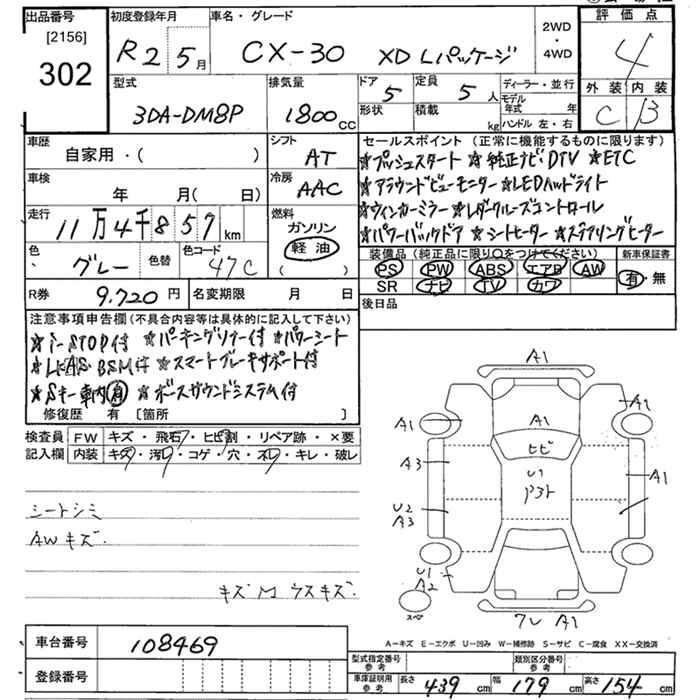 出品番号
[2156]
302
初度登録年月
R2 5月
車名・グレード
CX-30 XD Lパッケージ
2WD
・
4WD
評価点
4
外装 内装
C B
型式
3DA-DM8P
排気量
1800cc
ドア 5
形状
定員 5人
積載 kg
ディーラー・並行
モデル年式 年
ハンドル 左・右
車歴
自家用・( )
シフト
AT
車検
年 月( 日)
冷房
AAC
走行
11万4千857km
燃料
ガソリン
軽油
( )
色
グレー
色替
色コード
47C
セールスポイント(正常に機能するものに限ります)
★プッシュスタート ★純正ナビ・DTV ★ETC
★アラウンドビューモニター ★LEDヘッドライト
★ウィンカーミラー ★レダークルーズコントロール
★パワーバックドア ★シートヒーター ★ステアリングヒーター
装備品(純正品に限り○をつけてください)
PS PW ABS エアB AW
SR ナビ TV カワ
新車保証書
有・無
R券 9,720円
名変期限 月 日
後日品
注意事項申告欄(不具合内容等は具体的に記入して下さい)
★i-STOP付 ★パーキングソナー付 ★パワーシート
★LKAS・BSM付 ★スマートブレーキサポート付
★Sキー車内有 ★ボースサウンドシステム付
修復歴 有 [箇所 ]
検査員記入欄
FW キズ・飛石・ヒビ割・リペア跡・×要
内装 キズ・汚レ・コゲ・穴・スレ・キレ・破レ
シートシミ
AWキズ
キズM ウスキズ
A1
A1
A1
A2
ヒビ
A3
U1
A1
U2
A3
U1
A2
スペア
A1
A-キズ E-エクボ U-凹み W-補修跡 S-サビ C-腐食 XX-交換済
車台番号 108469
登録番号
型式指定番号 参考
類別区分番号 参考
車庫証明用 参考
長さ 439cm 幅 179cm 高さ 154cm